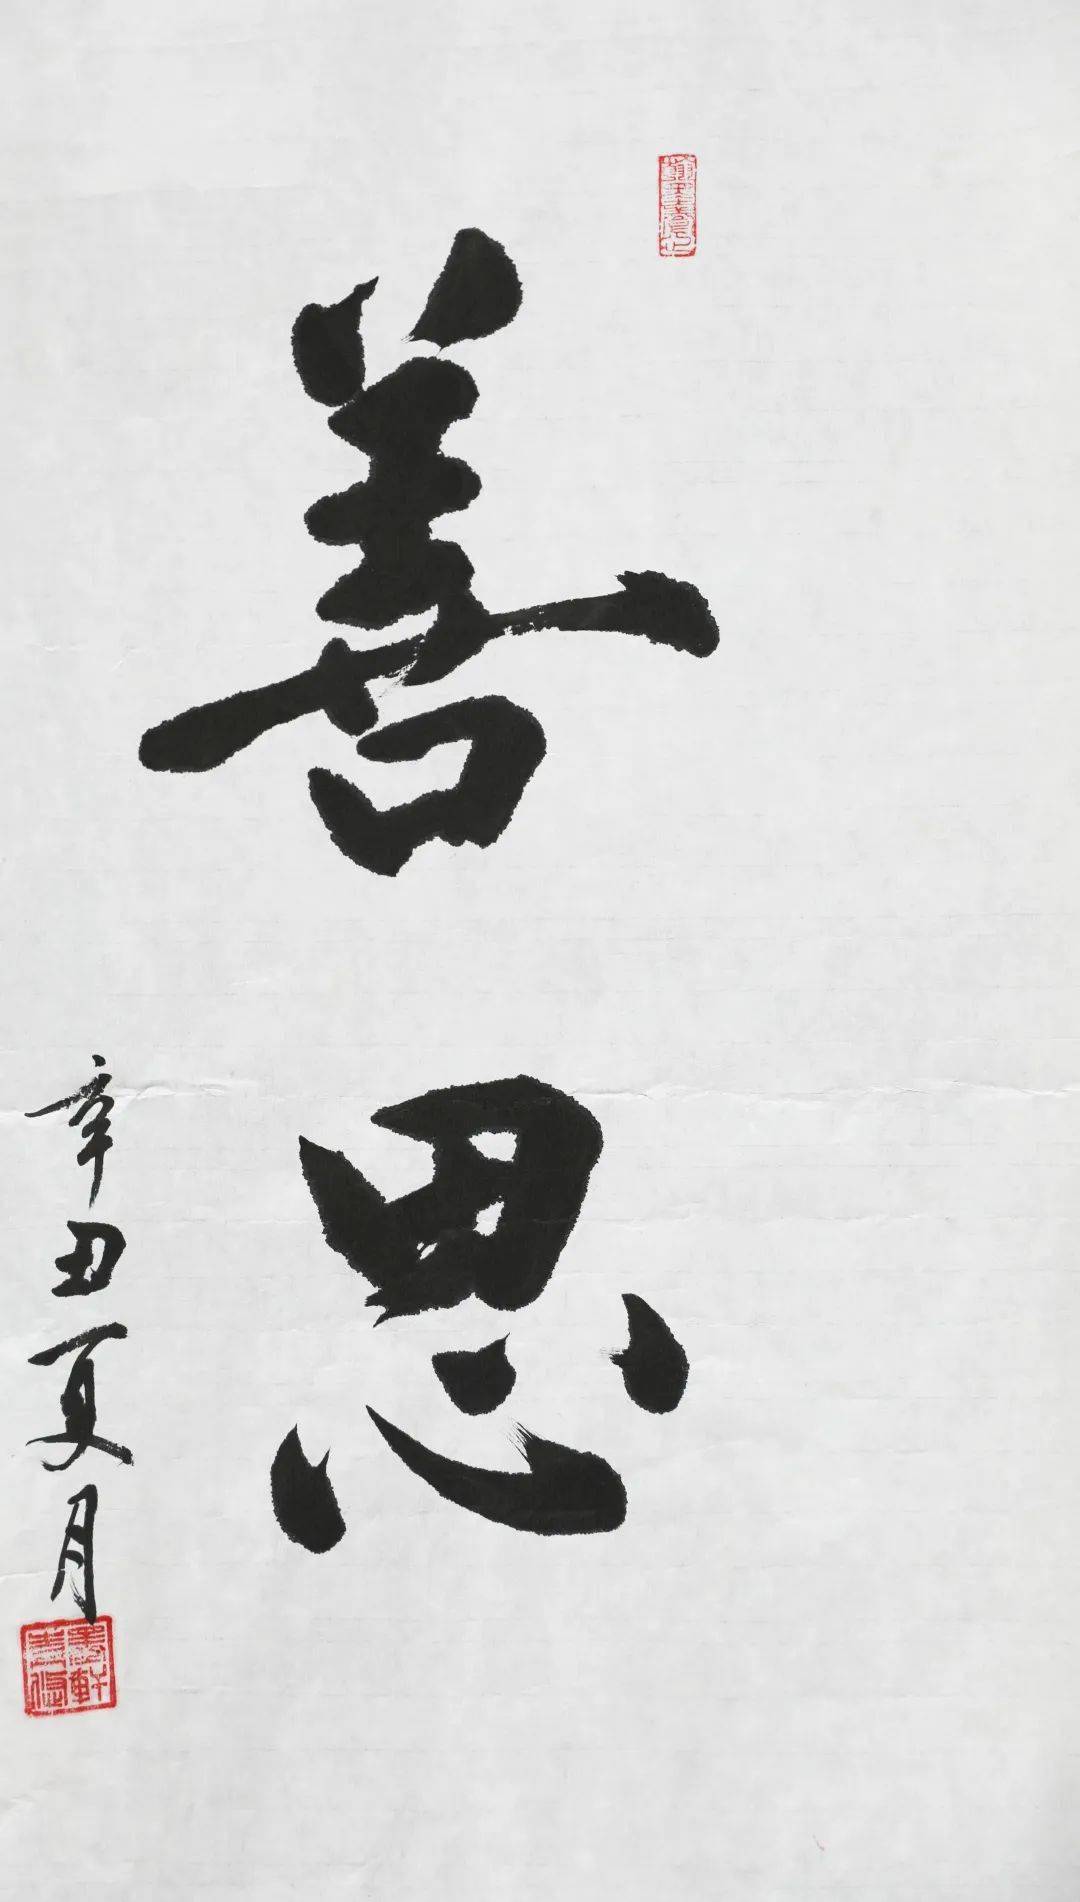 善思
辛丑夏月